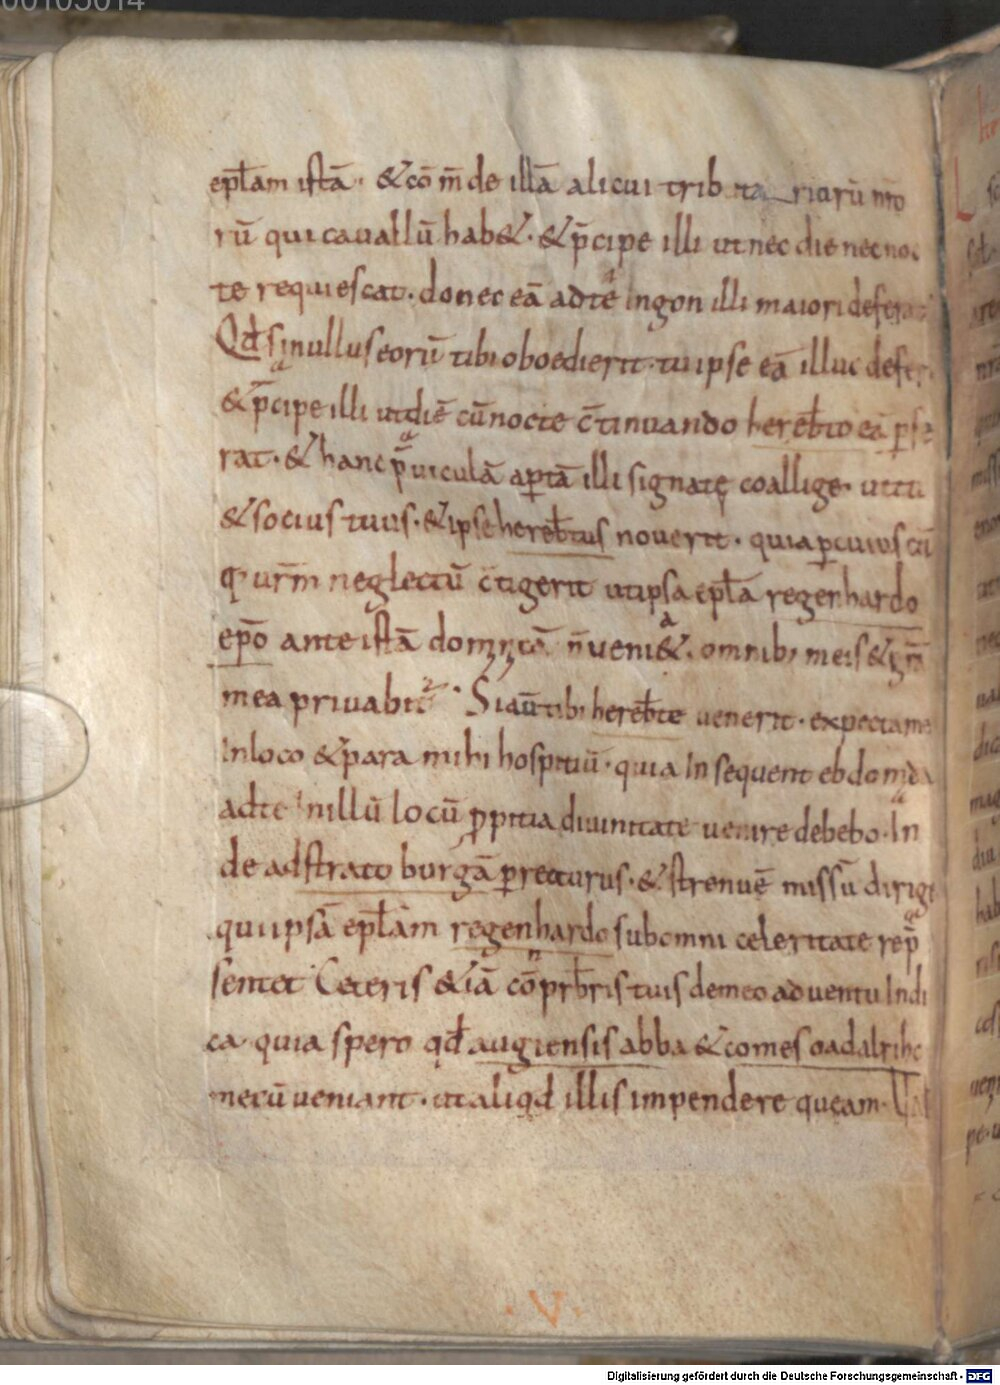 00105014
epl̄am istā · & cōm̄de illā alicui trib ta riorū nr̄o
rū qui cauallū hab& · & p̄cipe illi ut nec die nec noc
te requiescat · donec eā ad te ingon illi maiori defera
Qd̄ si nullus eorū tibi oboedierit · tu ipse eā illuc defer
& p̄cipe illi ut diē cū nocte c̄tinuando hereb̄to eā pfe
rat · & hanc p̄uiculā aptā illi signatę coallige · ut tu
& socius tuus · & ipse hereb̄tus nouerit · quia p cuius cū
q; ur̄m neglectū c̄tigerit ut ipsa epl̄a regenhardo
ep̄o ante istā domn̄icā n̄ ueni& · omnib; meis & gr̄a
mea priuabit² · Si aū tibi hereb̄te uenerit · expecta me
In loco & p̄para mihi hospitiū · quia In sequent ebdomada
ad te In illū locū ppitia diuinitate uenire debebo · In
de ad strato burgā precturus · & strenuē missū dirige
qui ipsā epl̄am regenhardo sub omni celeritate rep̄
sentet · Ceteris & iā cōn prb̄ris tuis de meo aduentu Indi
ca · quia spero qd̄ augiensis abba & comes oadalrihc
mecū ueniant · ut aliqd̄ illis impendere queam · Val
· V ·
Digitalisierung gefördert durch die Deutsche Forschungsgemeinschaft - DFG